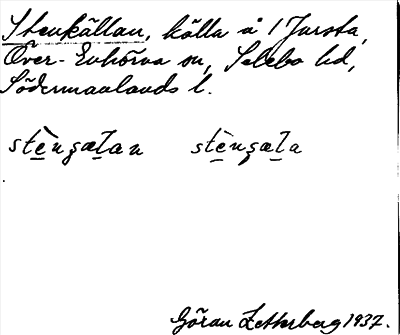 Stenkällan, källa å 1 Jursta,
Över-Enhörna sn, Selebo hd,
Södermanlands l.
stè̱nʂæḻan stè̱nʂæḻa
Göran Zetterberg 1937.